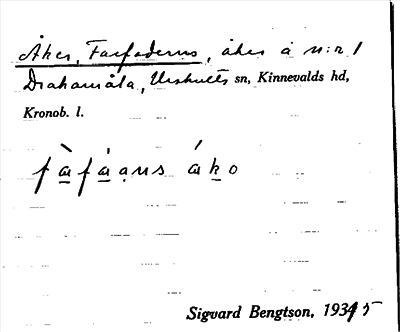 Åker, Farfaderns, åker å n:r 1
Drahamåla, Urshults sn, Kinnevalds hd,
Kronob. l.
fàfáans áko
Sigvard Bengtson, 1935